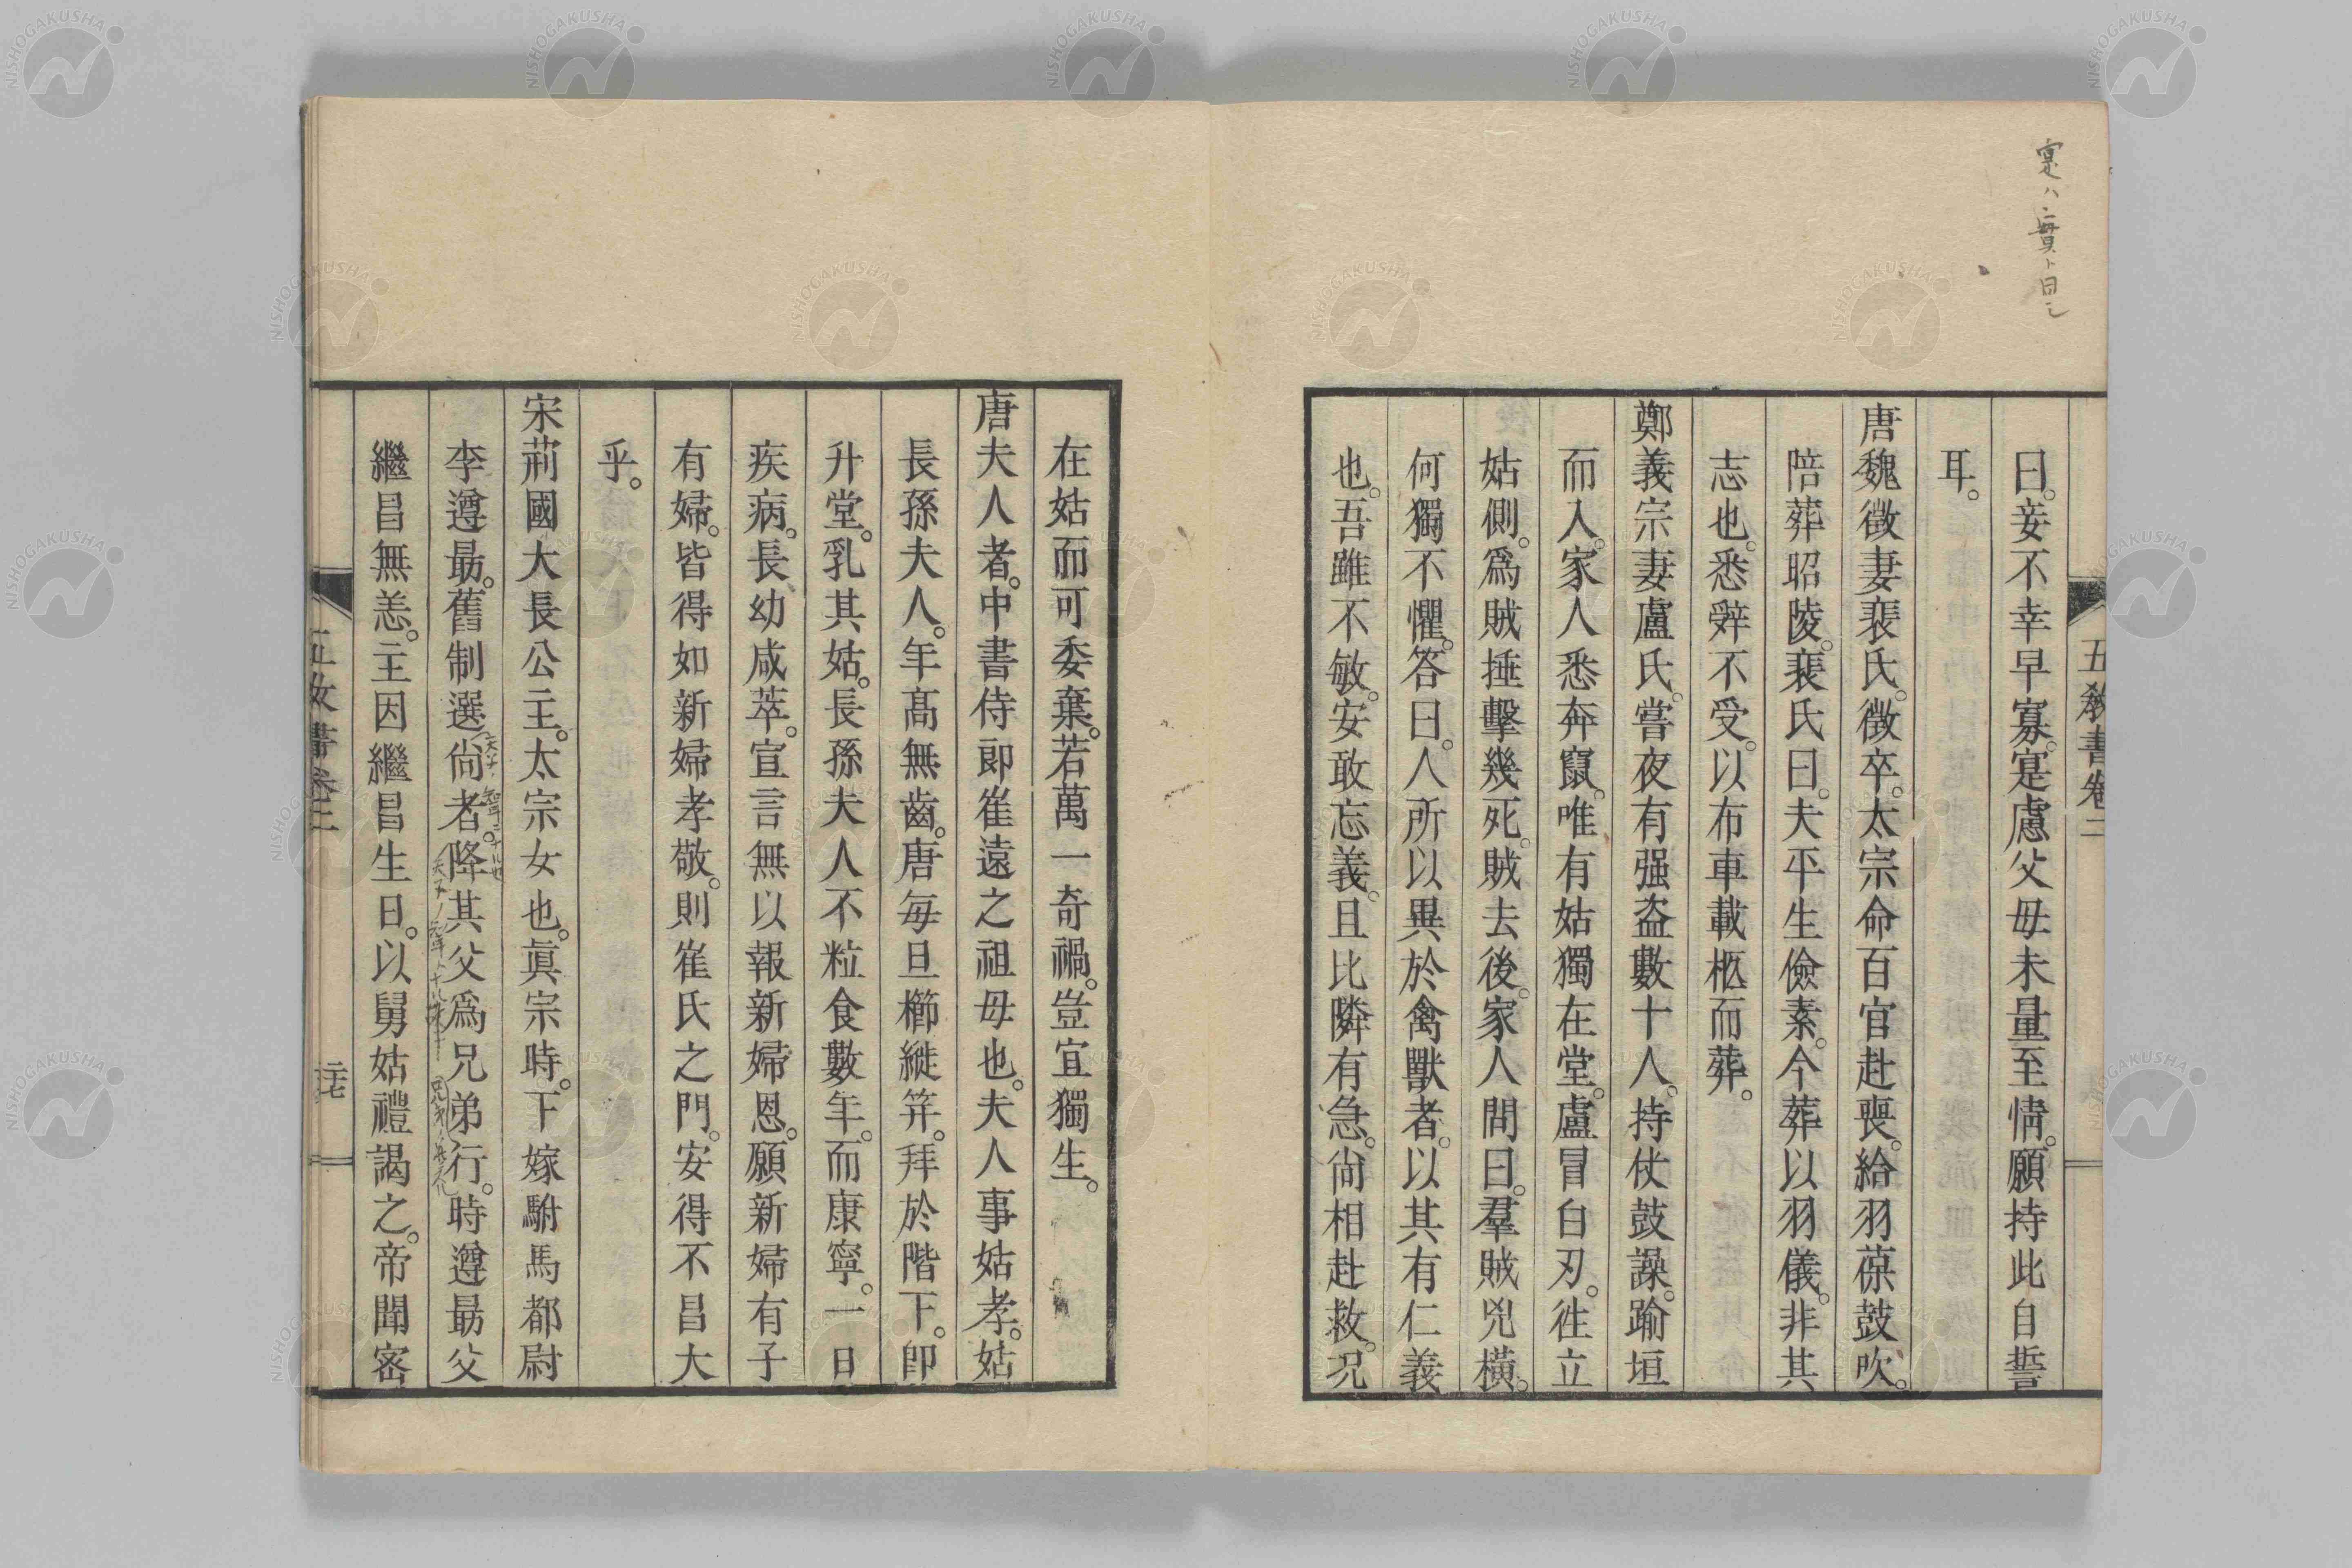 寔ハ實ト同シ
五教書卷二
曰。妾不幸早寡。寔慮父母未量至情。願持此自誓
耳。
唐魏徵妻裴氏。徵卒。太宗命百官赴喪。給羽葆鼓吹。
陪葬昭陵。裴氏曰。夫平生儉素。今葬以羽儀。非其
志也。悉辤不受。以布車載柩而葬。
鄭義宗妻盧氏。嘗夜有强盗數十人。持仗鼓譟。踰垣
而入。家人悉奔竄。唯有姑獨在堂。盧冒白刃。徃立
姑側。爲賊捶擊幾死。賊去後。家人問曰。羣賊兇橫。
何獨不懼。答曰。人所以異於禽獸者。以其有仁義
也。吾雖不敏。安敢忘義。且比隣有急。尙相赴救。况
在姑而可委棄。若萬一奇禍。豈宜獨生。
唐夫人者。中書侍郎崔遠之祖母也。夫人事姑孝。姑
長孫夫人。年髙無齒。唐每旦櫛縰笄。拜於階下。卽
升堂。乳其姑。長孫夫人不粒食數年。而康寧。一日
疾病。長幼咸萃。宣言無以報新婦恩。願新婦有子
有婦。皆得如新婦孝敬。則崔氏之門。安得不昌大
乎。
宋荊國大長公主。太宗女也。眞宗時。下嫁駙馬都尉
李遵勗。舊制選尙者。降其父爲兄弟行。時遵勗父
繼昌無恙。主因繼昌生日。以舅姑禮謁之。帝聞密
五教書卷二
二十七